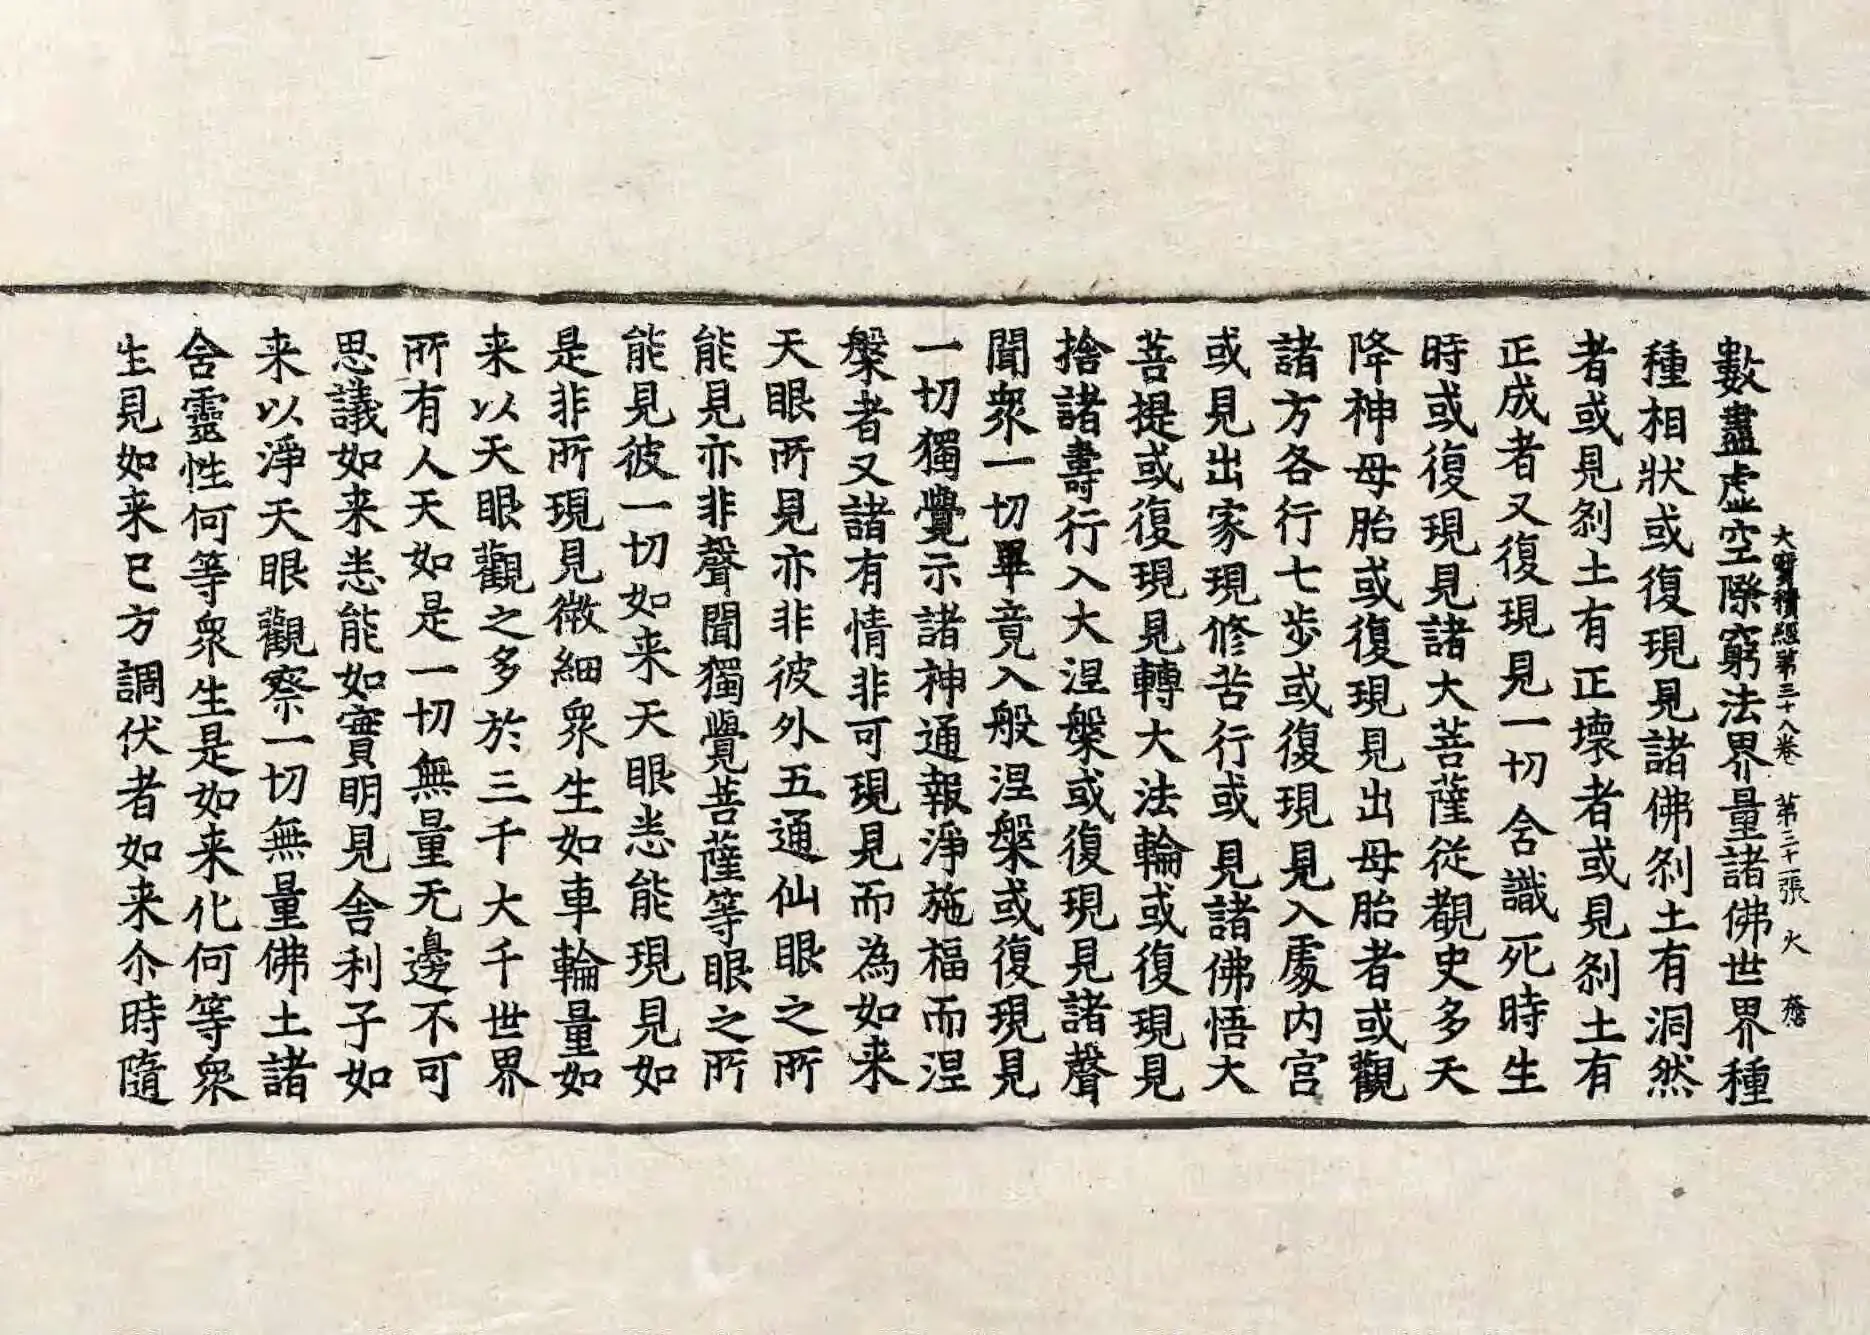 大寶積經第三十八卷 第三十二張 火
數盡虛空際窮法界量諸佛世界種
種相狀或復現見諸佛剎土有洞然
者或見剎土有正壞者或見剎土有
正成者又復現見一切含識死時生
時或復現見諸大菩薩從覩史多天
降神母胎或復現見出母胎者或觀
諸方各行七步或復現見入處內宮
或見出家現修苦行或見諸佛悟大
菩提或復現見轉大法輪或復現見
捨諸壽行入大涅槃或復現見諸聲
聞衆一切畢竟入般涅槃或復現見
一切獨覺示諸神通報淨施福而涅
槃者又諸有情非可現見而為如来
天眼所見亦非彼外五通仙眼之所
能見亦非聲聞獨覺菩薩等眼之所
能見彼一切如来天眼悉能現見如
是非所現見微細衆生如車輪量如
来以天眼觀之多於三千大千世界
所有人天如是一切無量无邊不可
思議如来悉能如實明見舍利子如
来以淨天眼觀察一切無量佛土諸
含靈性何等衆生是如来化何等衆
生見如来已方調伏者如来尒時隨